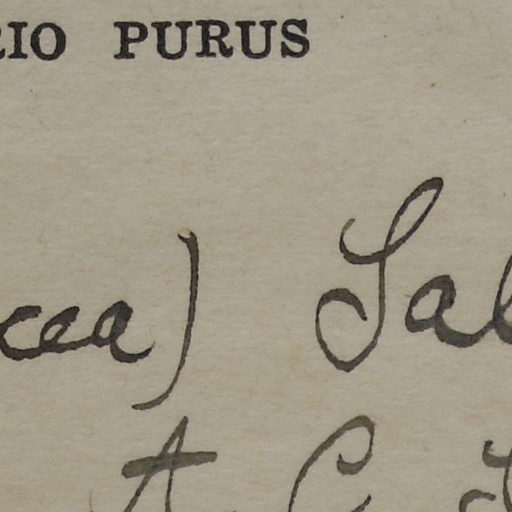 RIO PURUS
cea) Sal
A. C. S